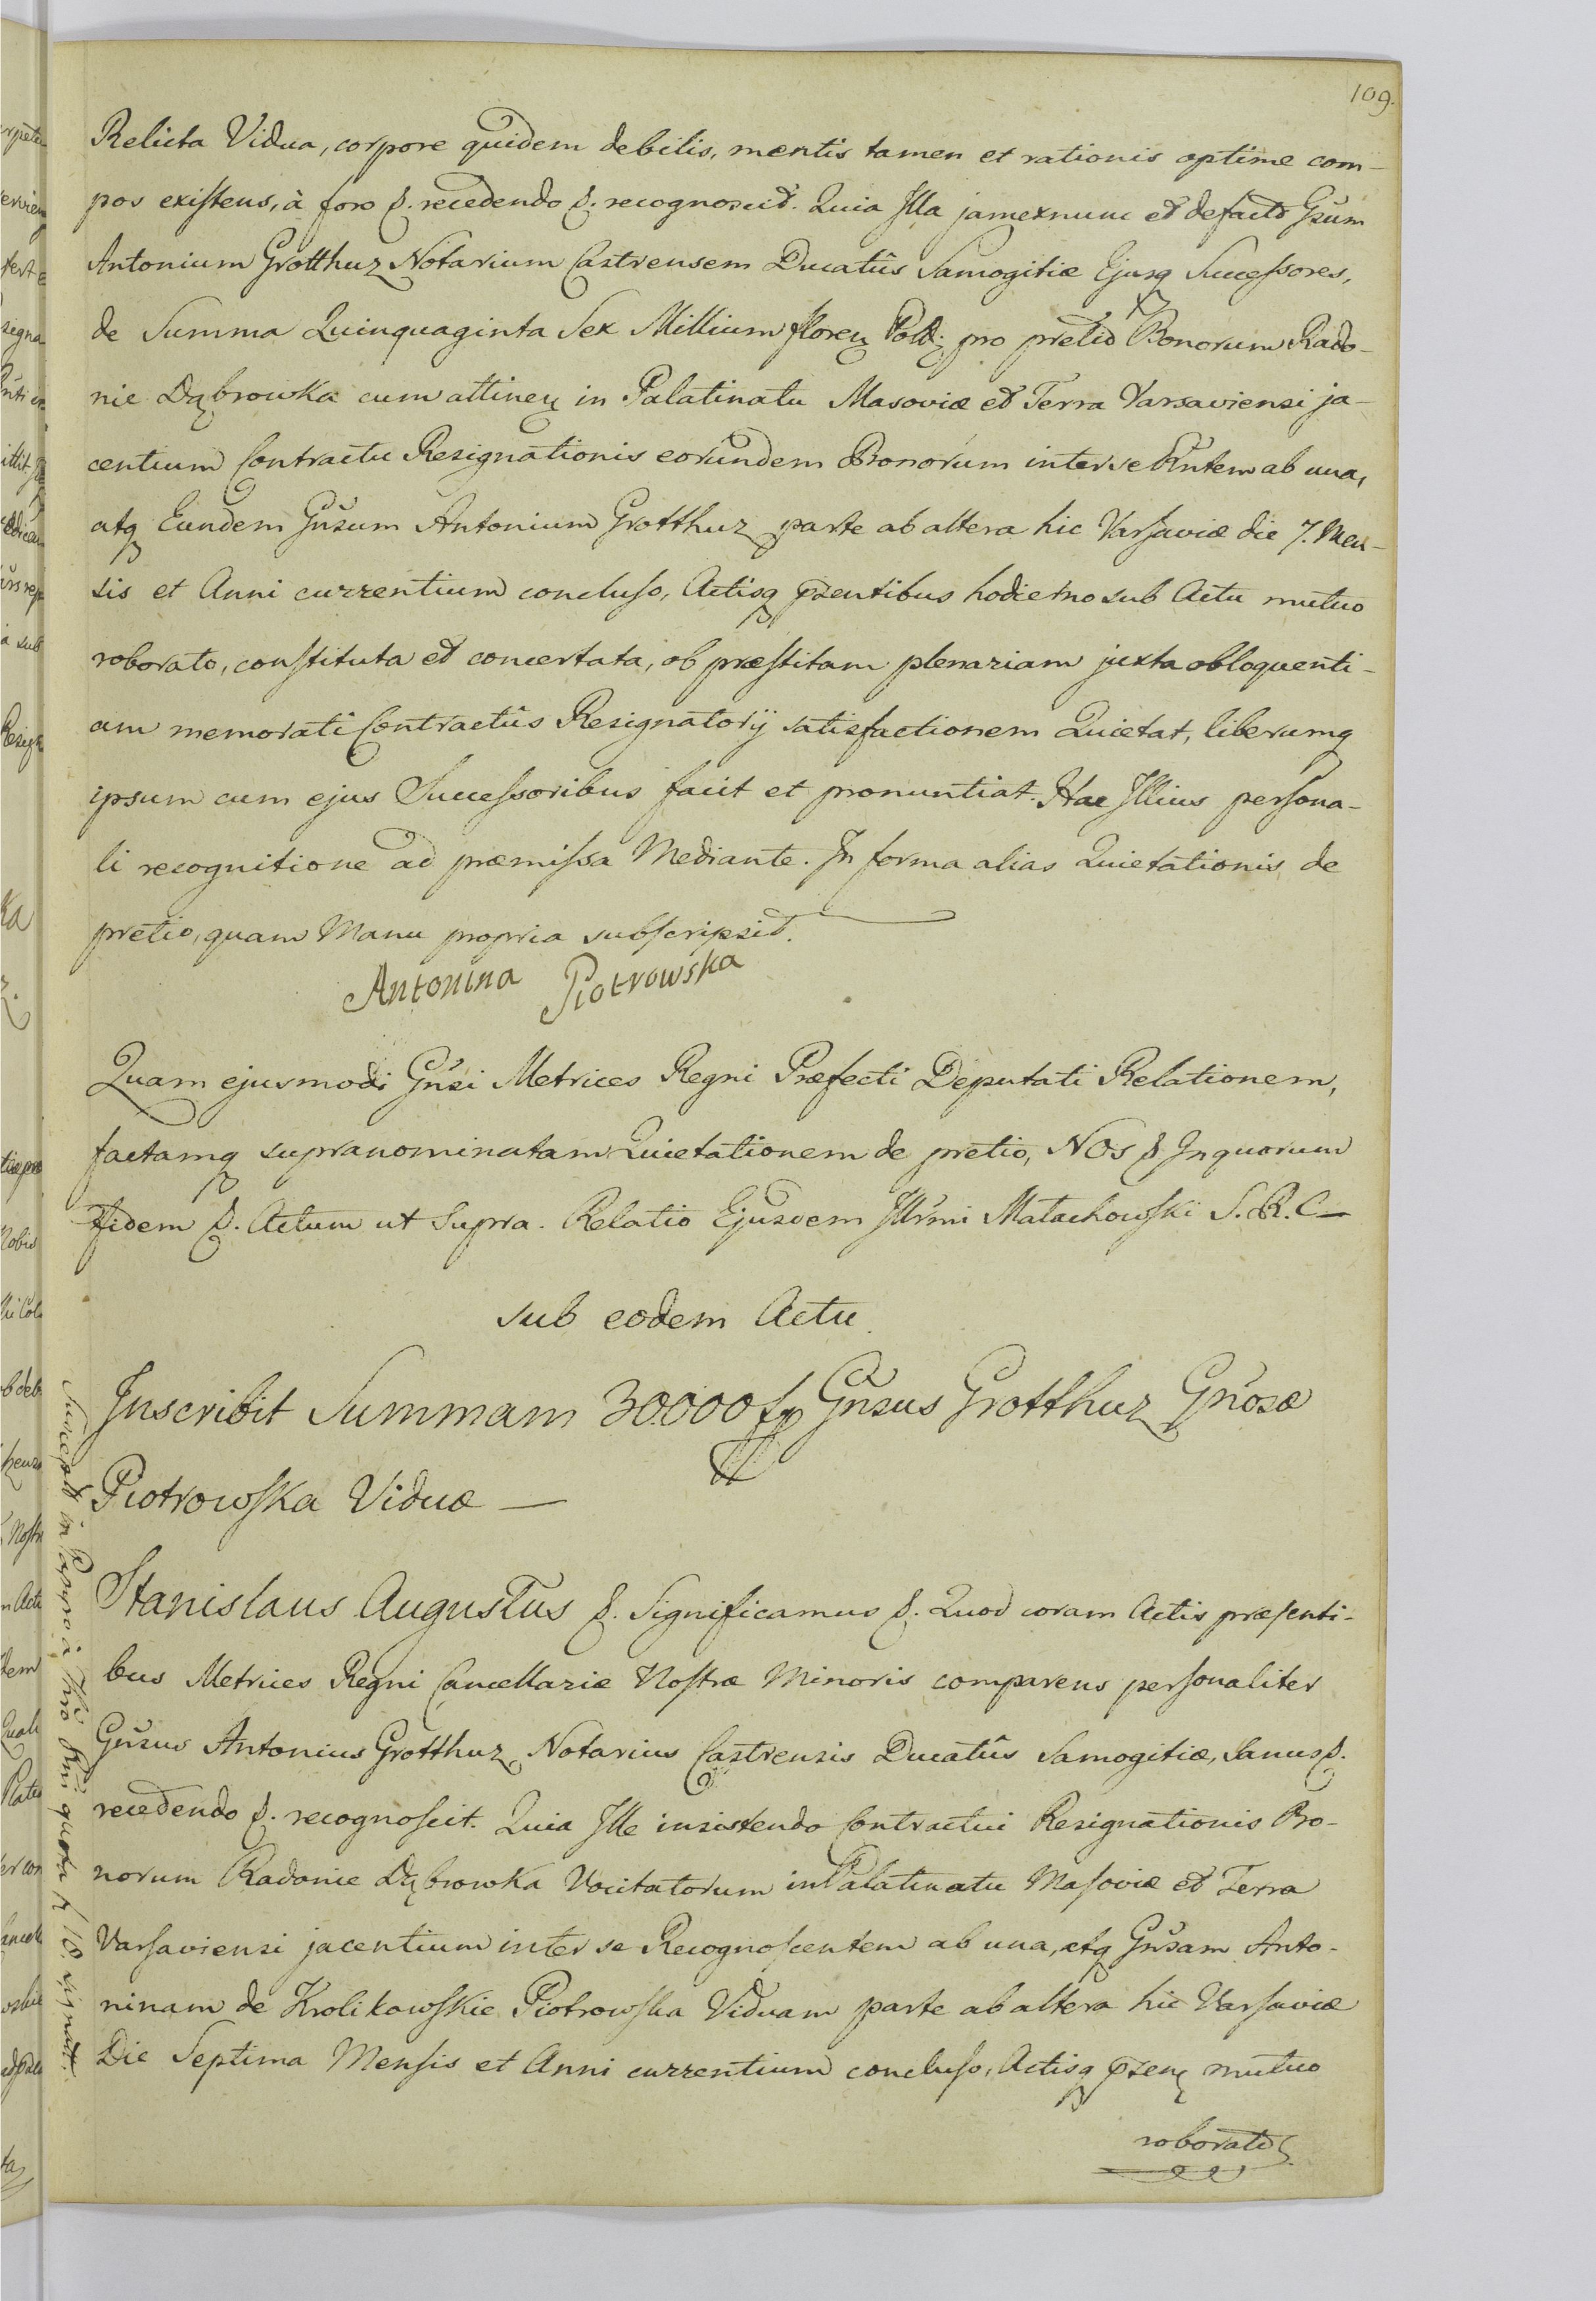 109.
Relicta Vidua, corpore quidem debilis, mentis tamen et rationis optime com-
pos existens, à foro &. recedendo &. recognoscit. Quia Illa jamexnunc et defacto Gsum
Antonium Grotthuz Notarium Castrensem Ducatûs Samogitiæ Ejusq Successores,
de Summa Quinquaginta Sex Millium floren Pold; pro pretio Bonorum Rado-
nie Dąbrowka cum attinen in Palatinatu Masoviæ et Terra Varsaviensi ja-
centium Contractu Resignationis eorundem Bonorum inter se Rñtem ab una,
atq Eundem Gñsum Antonium Grotthuz parte ab altera hic Varsaviæ die 7. Men-
sis et Anni currentium concluso, Actisq pzentibus hodierno sub Actu mutuo
roborato, constituta et concertata, ob præstitam plenariam juxta obloquenti-
am memorati Contractûs Resignatorij satisfactionem Quietat, liberumq
ipsum cum ejus Successoribus facit et pronuntiat. Hac Illius persona-
li recognitione ad præmissa Mediante. In forma alias Quietationis de
pretio, quam Manu propria subscripsit.
Antonina Piotrowska
Quam ejusmodi Gñsi Metrices Regni Præfecti Deputati Relationem,
factamq supranominatam Quietationem de pretio, NOS & In quorum
fidem &. Actum ut Supra. Relatio Ejusdem Illrmi Małachowski S. R. C
sub eodem Actu
Inscribit Summam 30000 fp Gñsus Grotthuz Gñosæ
Piotrowska Viduæ
Stanislaus Augustus &. Significamus &. Quod coram Actis præsenti-
bus Metrices Regni Cancellariæ Nostræ Minoris comparens personaliter
Gñsus Antonius Grotthuz Notarius Castrensis Ducatûs Samogitiæ, Sanus &.
recedendo &. recognoscit. Quia Ille insistendo Contractui Resignationis Bo-
norum Radonie Dąbrowka Vocitatorum in Palatinatu Masoviæ et Terra
Varsaviensi jacentium inter se Recognoscentem ab una, atq Gñsam Anto-
ninam de Krolikowskie Piotrowska Viduam parte ab altera hic Varsaviæ
Die Septima Mensis et Anni currentium concluso, Actisq pzen mutuo
roborato